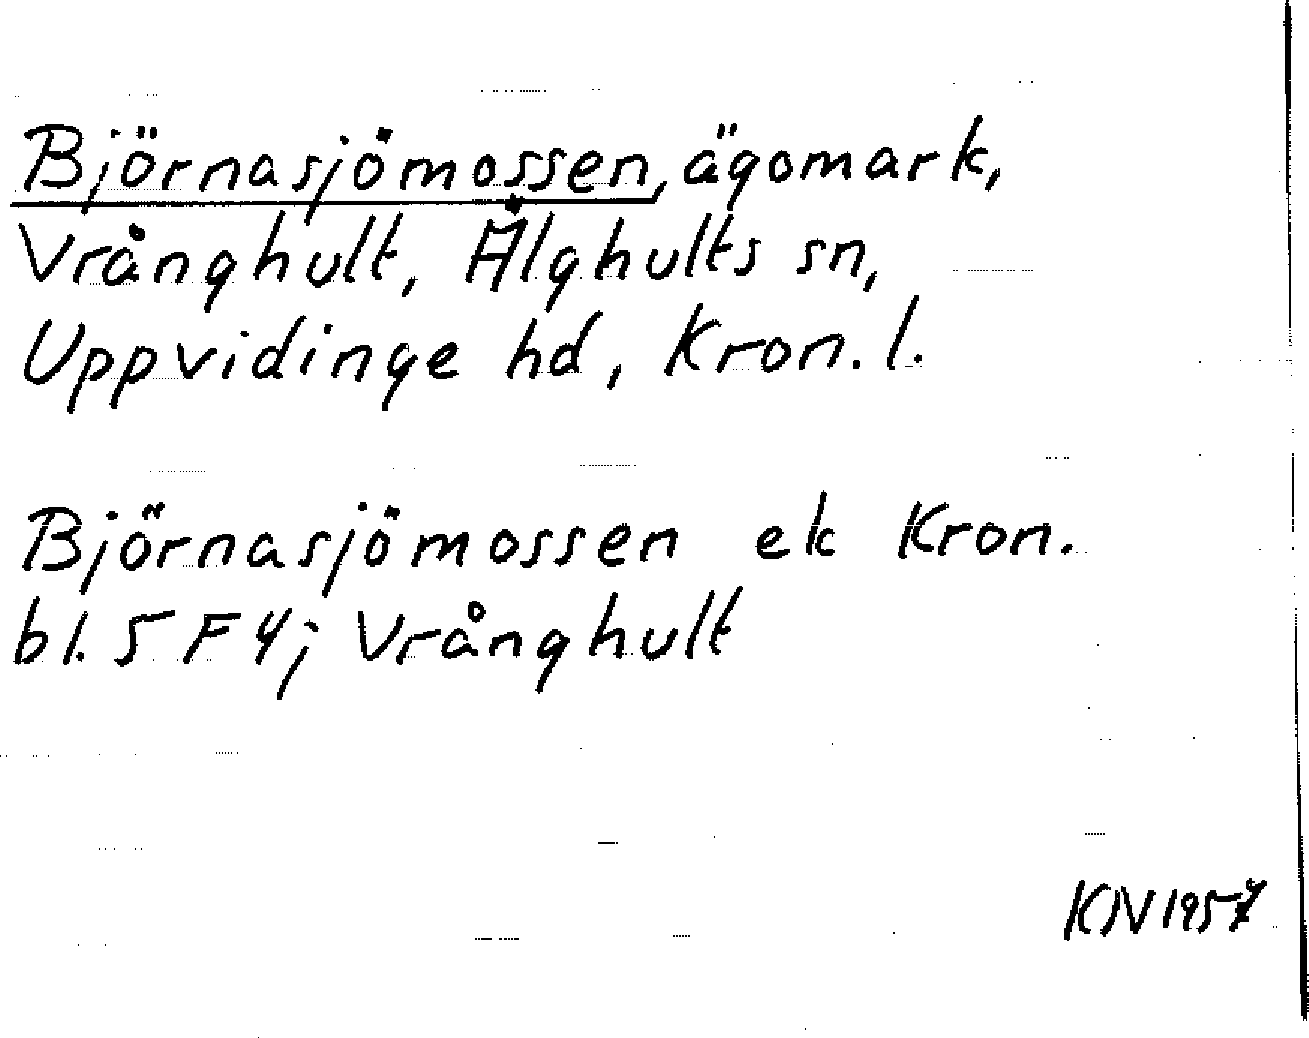 Björnasjömossen, ägomark,
Vrånghult, Älghults sn,
Uppvidinge hd, Kron. l.
Björnasjömossen ek Kron.
bl. 5 F 4; Vrånghult
KN 1957